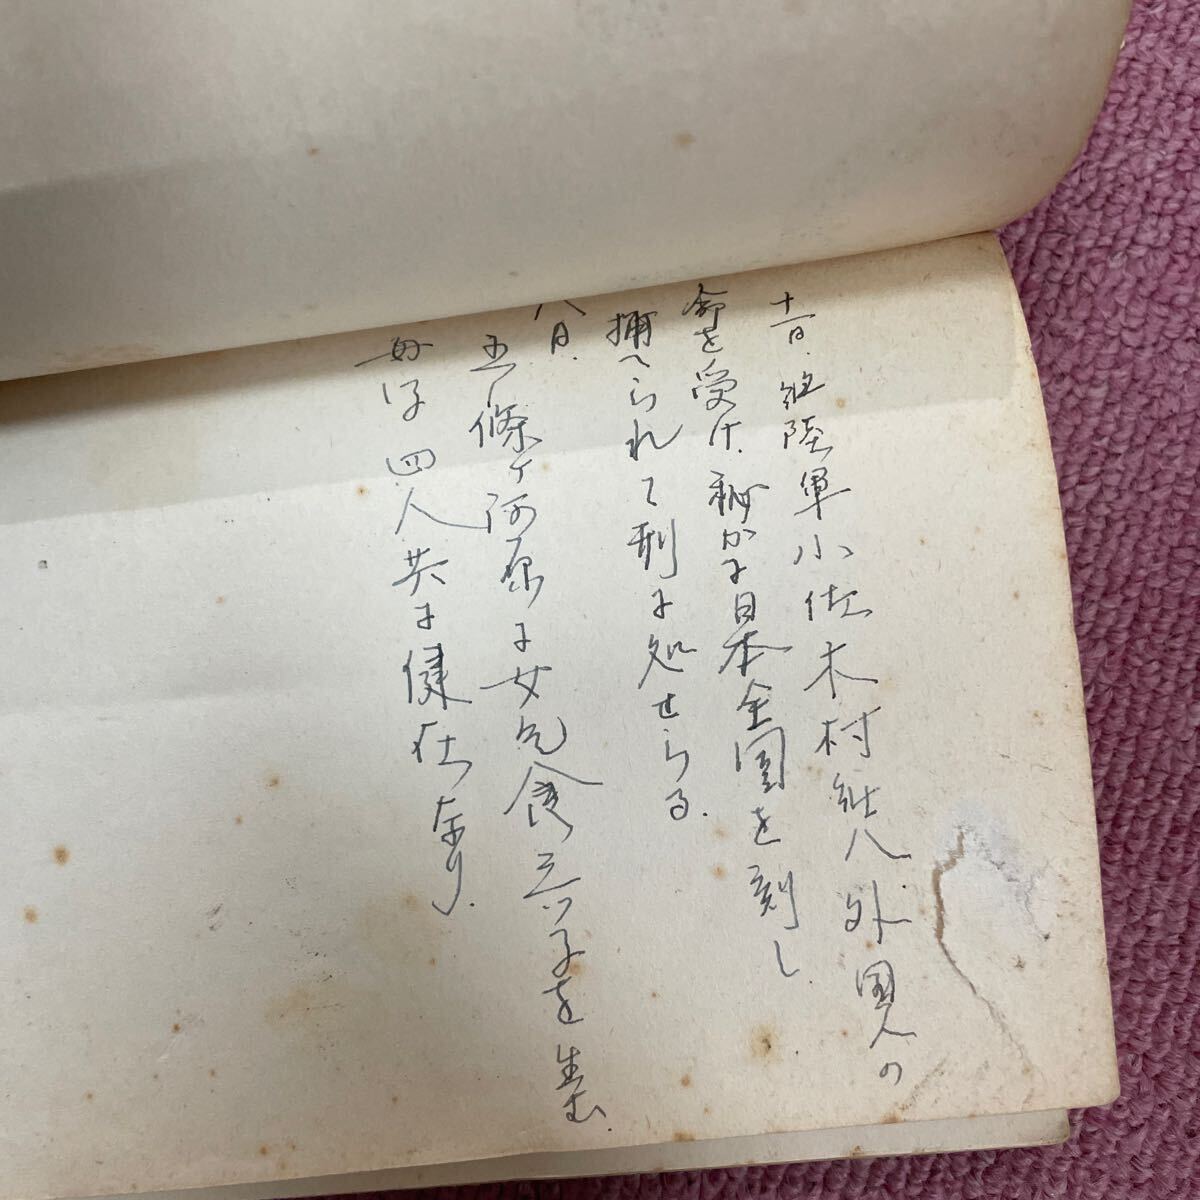 十一日、陸軍小佐木村 八外国人の
命を受け、秘かに日本全国を刻し
捕へられて刑に処せらる.
八日.
五條ヶ河原に女乞食三ッ子を生む.
母子四人共に健在なり.